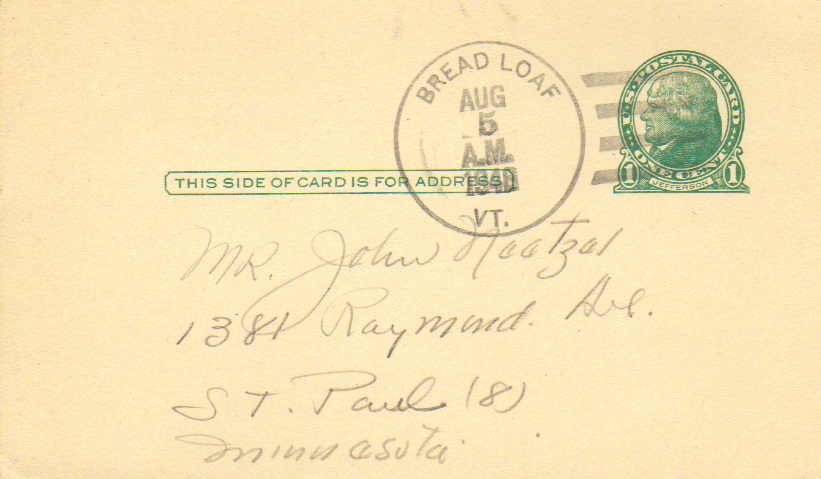 BREAD LOAF
AUG
5
A.M.
VT.
U.S. POSTAL CARD
ONE CENT
1 JEFFERSON 1
THIS SIDE OF CARD IS FOR ADDRESS
MR. John
1381 Raymond. Ave.
ST. Paul (8)
Minnasota